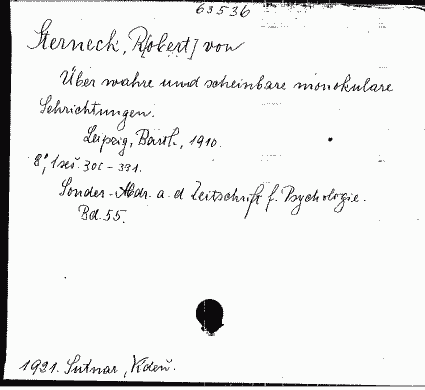 63536
Sterneck, R[obert] von
Über wahre und scheinbare monokulare
Sehrichtungen.
Leipzig, Barth, 1910.
8°, 1 seš. 300 - 331.
Sonder-Abdr. a. d Zeitschrift f. Psychologie.
Bd. 55.
1921. Sutnar, Vídeň.